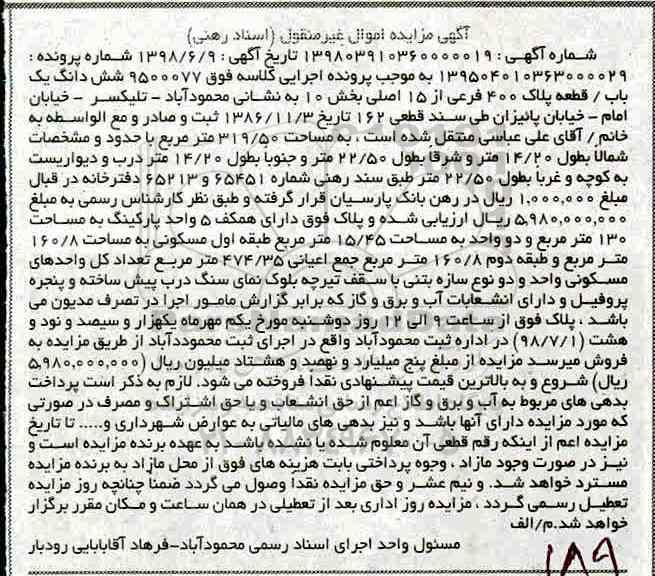 آگهی مزایده اموال غیرمنقول (اسناد رهنی)
شماره آگهی : ۱۳۹۸۰۳۹۱۰۳۶۰۰۰۰۰۱۹ تاریخ آگهی : ۱۳۹۸/۶/۹ شماره پرونده :
۱۳۹۵۰۴۰۱۰۳۶۳۰۰۰۰۲۹ به موجب پرونده اجرایی کلاسه فوق ۹۵۰۰۰۷۷ شش دانگ یک
باب / قطعه پلاک ۴۰۰ فرعی از ۱۵ اصلی بخش ۱۰ به نشانی محمودآباد - تلیکسر - خیابان
امام - خیابان پائیزان طی سند قطعی ۱۶۲ تاریخ ۱۳۸۶/۱۱/۳ ثبت و صادر و مع الواسطه به
خانم / آقای علی عباسی منتقل شده است ، به مساحت ۳۱۹/۵۰ متر مربع با حدود و مشخصات
شمالا بطول ۱۴/۲۰ متر و شرقا بطول ۲۲/۵۰ متر و جنوبا بطول ۱۴/۲۰ متر درب و دیواریست
به کوچه و غربا بطول ۲۲/۵۰ متر طبق سند رهنی شماره ۶۵۴۵۱ و ۶۵۲۱۳ دفترخانه در قبال
مبلغ ۱,۰۰۰,۰۰۰ ریال در رهن بانک پارسیان قرار گرفته و طبق نظر کارشناس رسمی به مبلغ
۵,۹۸۰,۰۰۰,۰۰۰ ریال ارزیابی شده و پلاک فوق دارای همکف ۵ واحد پارکینگ به مساحت
۱۳۰ متر مربع و دو واحد به مساحت ۱۵/۴۵ متر مربع طبقه اول مسکونی به مساحت ۱۶۰/۸
متر مربع و طبقه دوم ۱۶۰/۸ متر مربع جمع اعیانی ۴۷۴/۳۵ متر مربع تعداد کل واحدهای
مسکونی واحد و دو نوع سازه بتنی با سقف تیرچه بلوک نمای سنگ درب پیش ساخته و پنجره
پروفیل و دارای انشعابات آب و برق و گاز که برابر گزارش مامور اجرا در تصرف مدیون می
باشد ، پلاک فوق از ساعت ۹ الی ۱۲ روز دوشنبه مورخ یکم مهرماه یکهزار و سیصد و نود و
هشت (۹۸/۷/۱) در اداره ثبت محمودآباد واقع در اجرای ثبت محموددآباد از طریق مزایده به
فروش میرسد مزایده از مبلغ پنج میلیارد و نهصد و هشتاد میلیون ریال (۵,۹۸۰,۰۰۰,۰۰۰
ریال) شروع و به بالاترین قیمت پیشنهادی نقدا فروخته می شود. لازم به ذکر است پرداخت
بدهی های مربوط به آب و برق و گاز اعم از حق انشعاب و یا حق اشتراک و مصرف در صورتی
که مورد مزایده دارای آنها باشد و نیز بدهی های مالیاتی به عوارض شهرداری و..... تا تاریخ
مزایده اعم از اینکه رقم قطعی آن معلوم شده یا نشده باشد به عهده برنده مزایده است و
نیز در صورت وجود مازاد ، وجوه پرداختی بابت هزینه های فوق از محل مازاد به برنده مزایده
مسترد خواهد شد. و نیم عشر و حق مزایده نقدا وصول می گردد ضمنا چنانچه روز مزایده
تعطیل رسمی گردد ، مزایده روز اداری بعد از تعطیلی در همان ساعت و مکان مقرر برگزار
خواهد شد.م/الف
مسئول واحد اجرای اسناد رسمی محمودآباد-فرهاد آقابابایی رودبار
۱۸۹